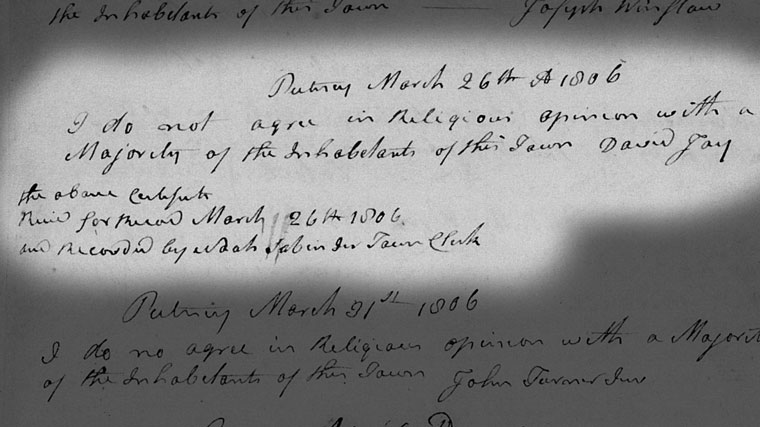 the Inhabetants of this Town — Joseph Winslow
Putney March 26th AD 1806
I do not agree in Religious opinion with a
Majority of the Inhabetants of this Town David Jay
the above Certificate
Reciv'd for Record March 26th 1806
and Recorded by Noah Sabin Jr Town Clerk
Putney March 31st 1806
I do no agree in Religious opinion with a Majorit
of the Inhabetants of this Town John Turner Junr